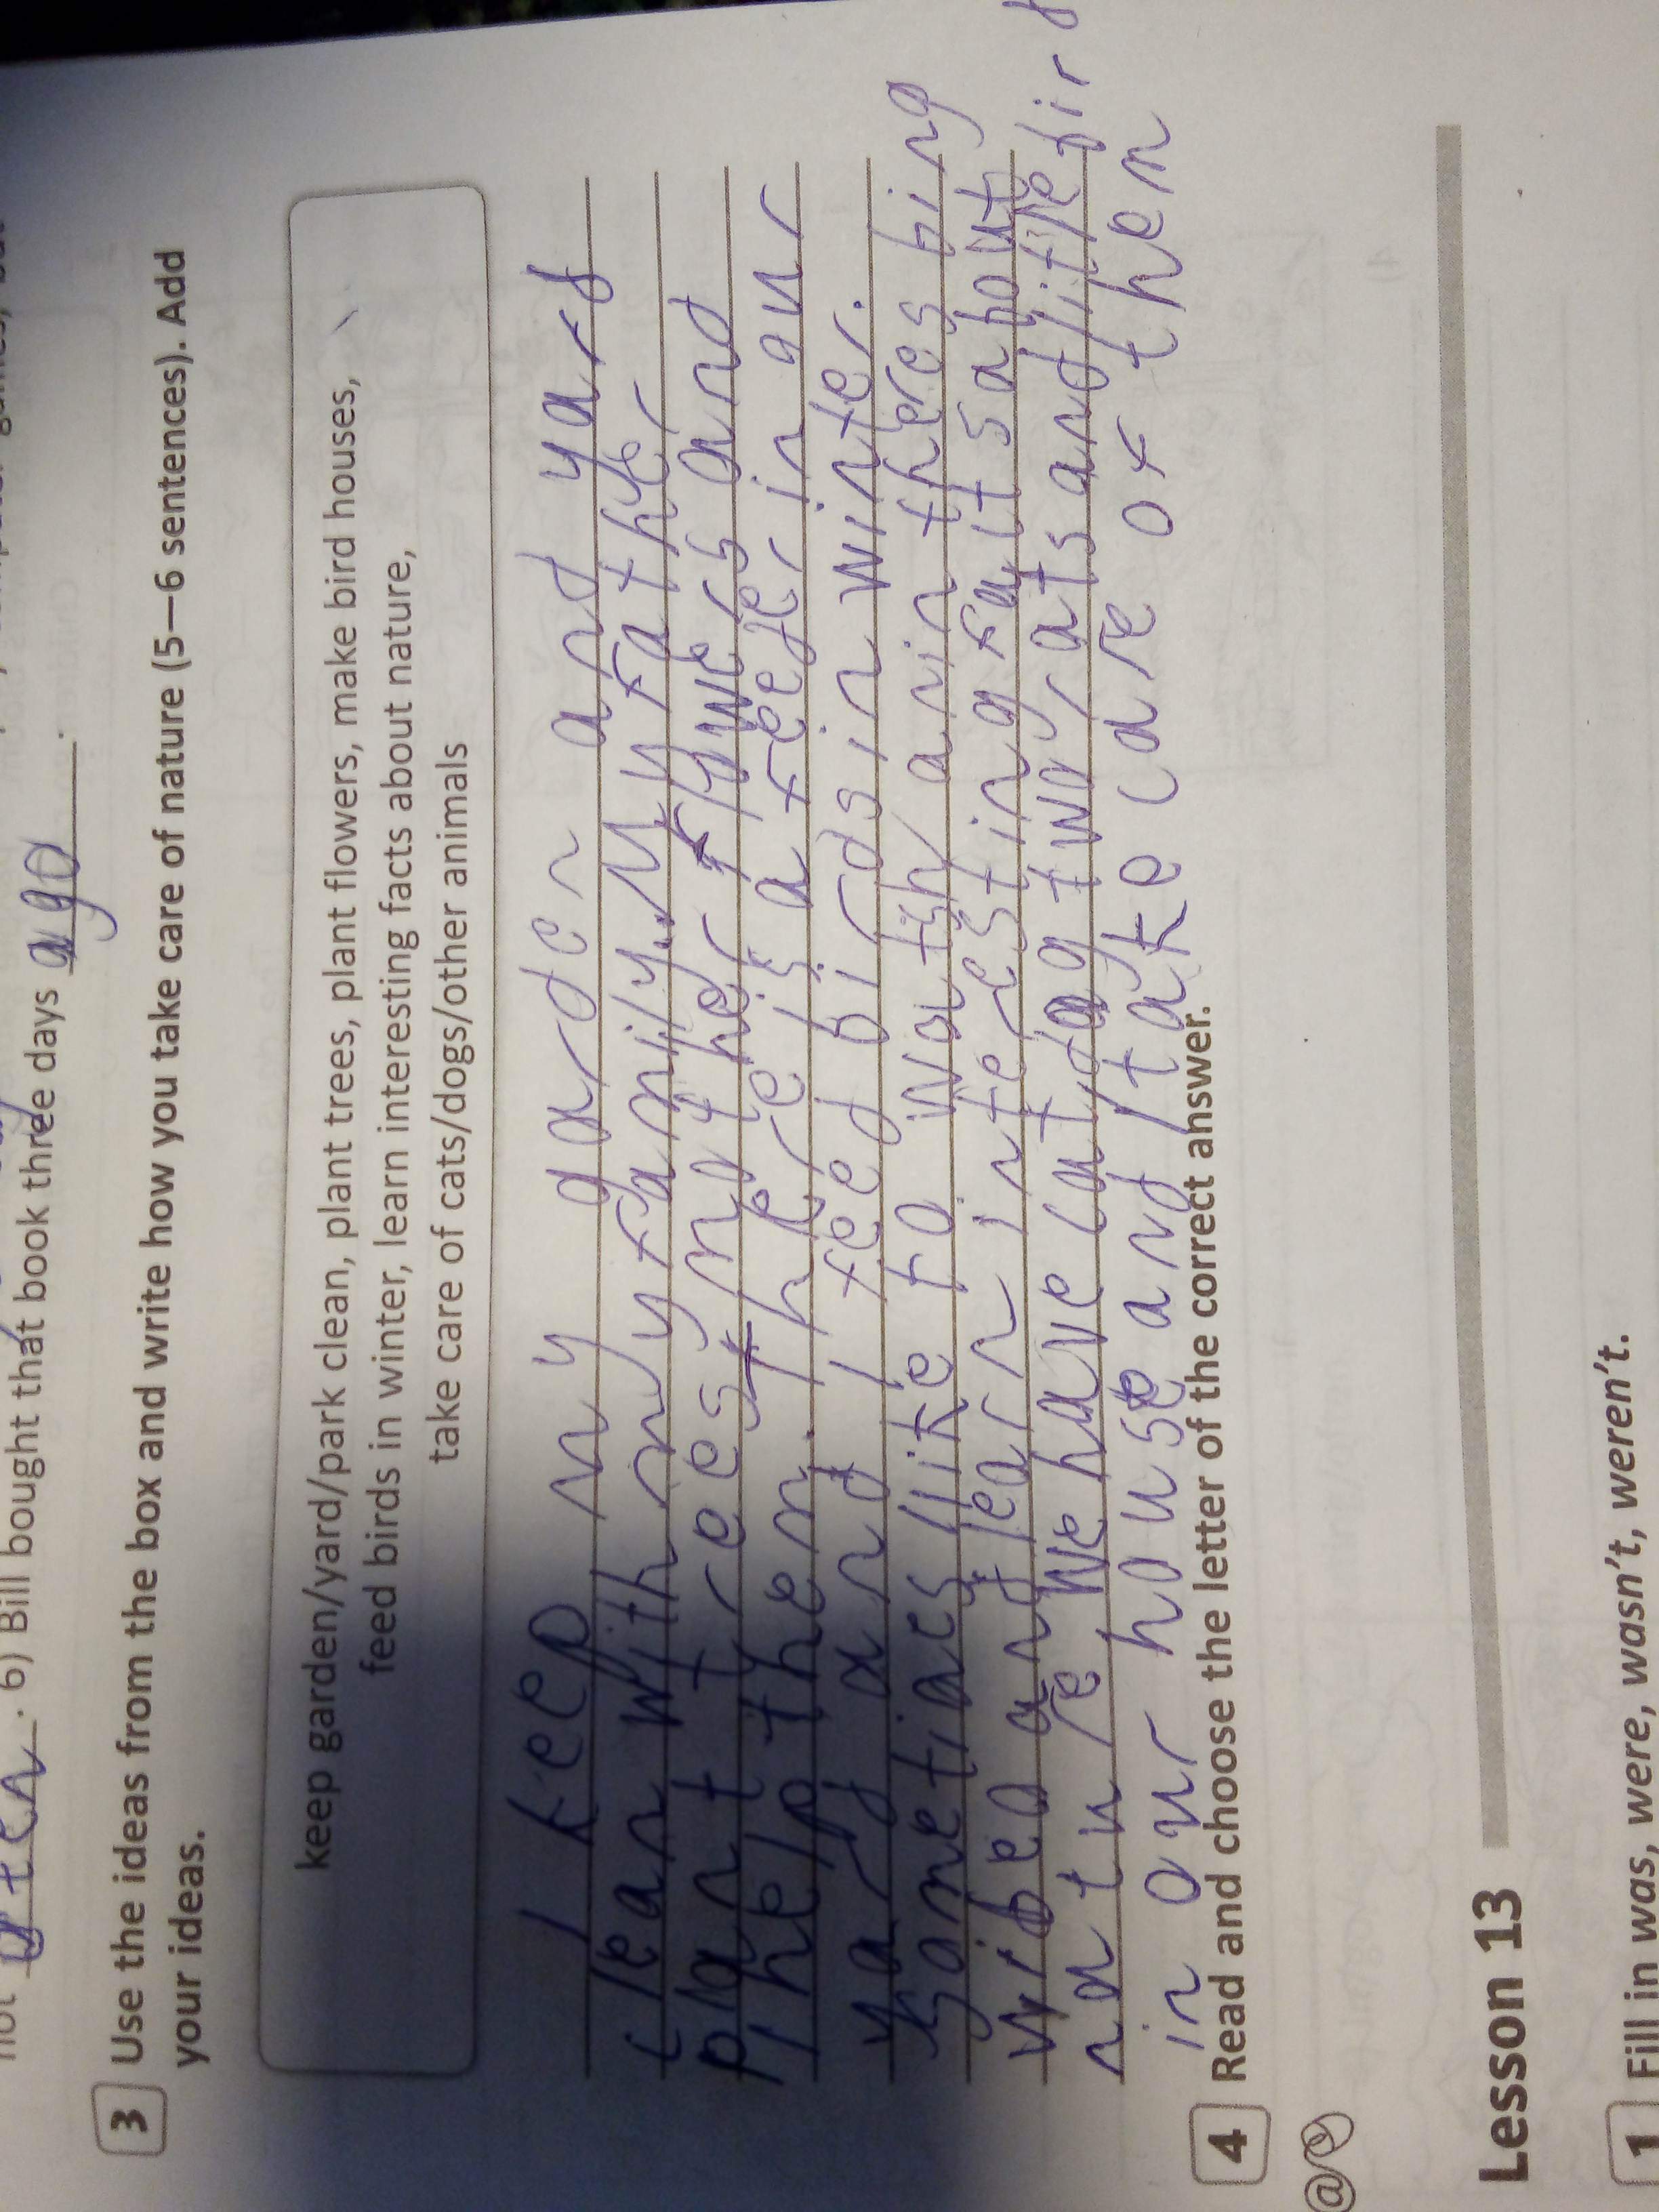 . 6) Bill bought that book three days ago.
3 Use the ideas from the box and write how you take care of nature (5–6 sentences). Add
your ideas.
keep garden/yard/park clean, plant trees, plant flowers, make bird houses,
feed birds in winter, learn interesting facts about nature,
take care of cats/dogs/other animals
I keep my garden and yard
clean with my family. My father
plant trees mother flowers and
I help them. There is a feeder in our
yard and I feed birds in winter.
like to
and learn interesting
nature we have cat, dog two rats and little bird
in our house and I take care of them
4 Read and choose the letter of the correct answer.
Lesson 13
1 Fill in was, were, wasn't, weren't.